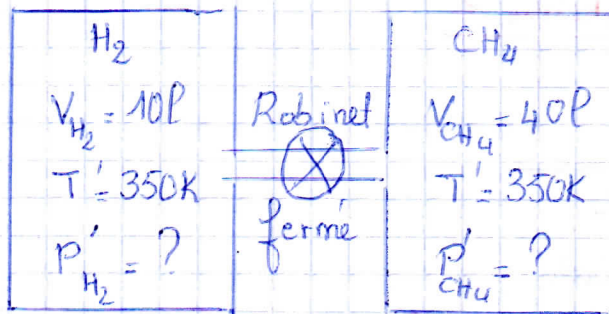 H₂
V_H₂ = 10l
T' = 350K
P'_H₂ = ?
Robinet
fermé
CH₄
V_CH₄ = 40l
T' = 350K
P'_CH₄ = ?